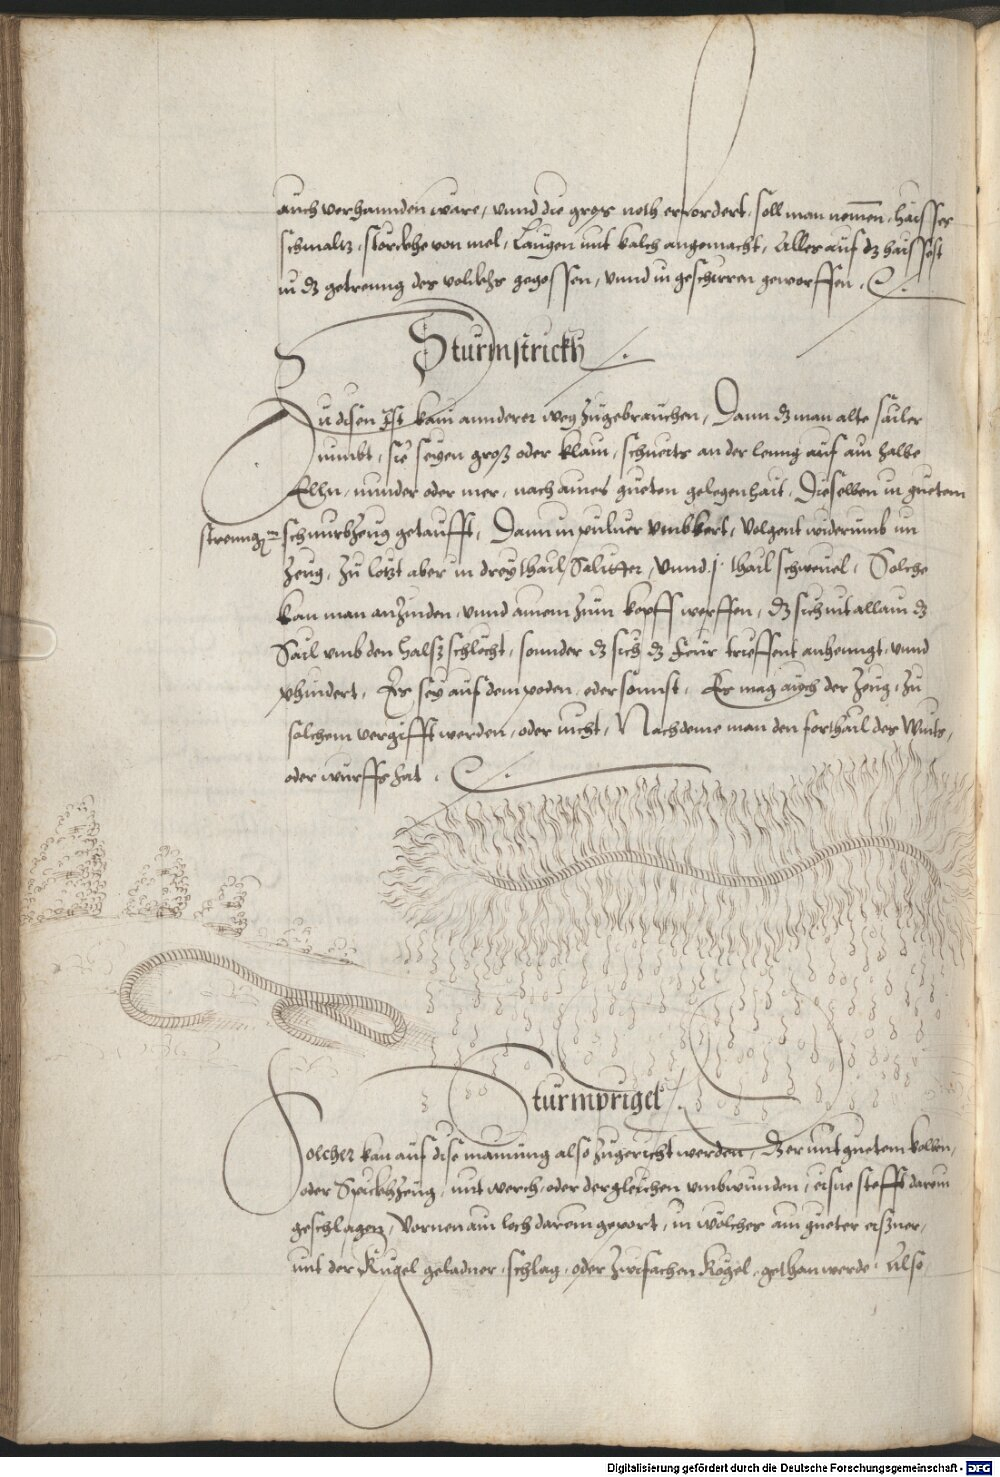 auch verhannden wäre, unnd die gros noth erfordert, soll man nemen, haisses
schmaltz, sterckhe von mel, Laugen mit kalch angemacht, Alles auf dz haissest
in dz getreng des volckhs gegossen, unnd in geschirren geworffen.
Sturmstrickh
Zu disen Ist kain annderer weg zugebrauchen, Dann dz man alte sailer
nimbt, sie seyen groß oder klain, schneits an der leng auf ain halbe
Elln, minder oder mer, nach aines gueten gelegenhait, Dieselben in guetem
strenngen schmirbzeug getaufft, Dann in puluer umbkert, volgent widerumb im
Zeug, zu letzt aber in drey thail Saliter, unnd j thail schweuel. Solche
kan man anzinden, unnd ainem zum kopff werffen, dz sich nit allain dz
Sail umb den halß schlecht, sonnder dz sich dz feur trieffent anhenngt, unnd
phindert, Es sey auf dem poden, oder sonnst. Es mag auch der Zeug, zu
solchem vergifft werden, oder nicht, Nachdeme man den forthail des Wints,
oder wurffs hat.
Sturmprigel
Solcher kan auf dise mainung also zugericht werden, Der mit guetem kolben,
oder Spickhzeug, mit werch, oder dergleichen umbwunden, eisne stefft darein
geschlagen, Vornen ain loch darein geport, in wölches ain gueter eißner,
mit der Kugel geladner, schlag, oder zwifachen Kogel, gethan werde. Also
Digitalisierung gefördert durch die Deutsche Forschungsgemeinschaft - DFG